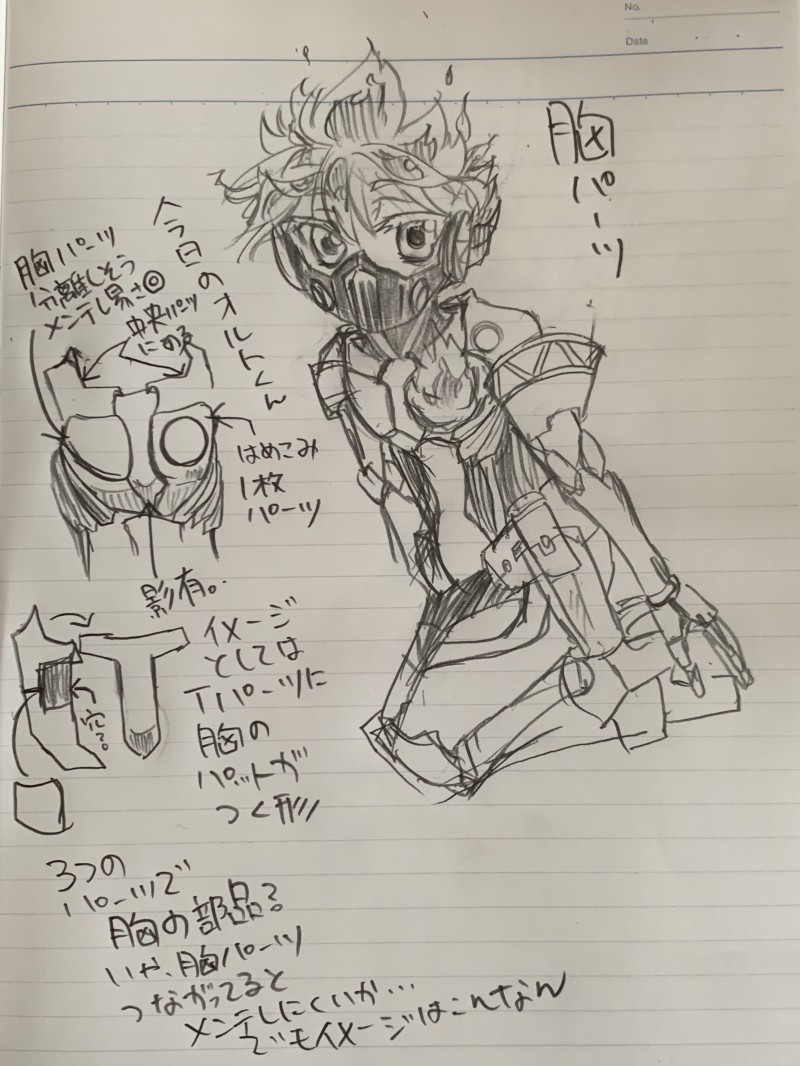 No.
Date
胸パーツ
今日のオルトくん
胸パーツ
分離しそう
メンテし易さ◎
中央パーツ
にめる
はめこみ
1枚
パーツ
影有。
イメージ
としては
Tパーツに
胸の
パットが
つく形
穴?
3つの
パーツで
胸の部品?
いや、胸パーツ
つながってると
メンテしにくいか…
でもイメージはこんなん